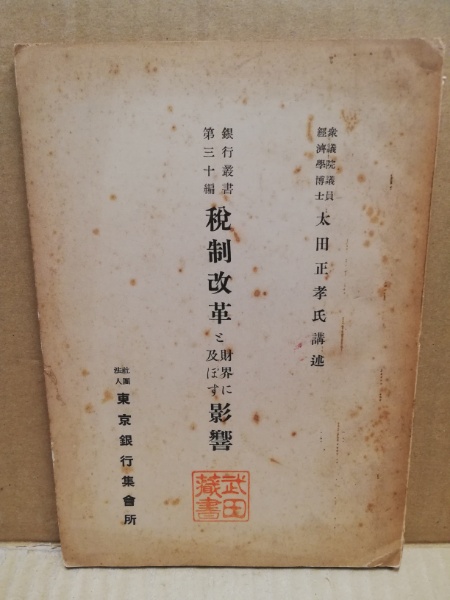 衆議院議員
經濟學博士
太田正孝氏講述
銀行叢書
第三十編
稅制改革と財界に及ぼす影響
社團法人
東京銀行集會所
武田藏書